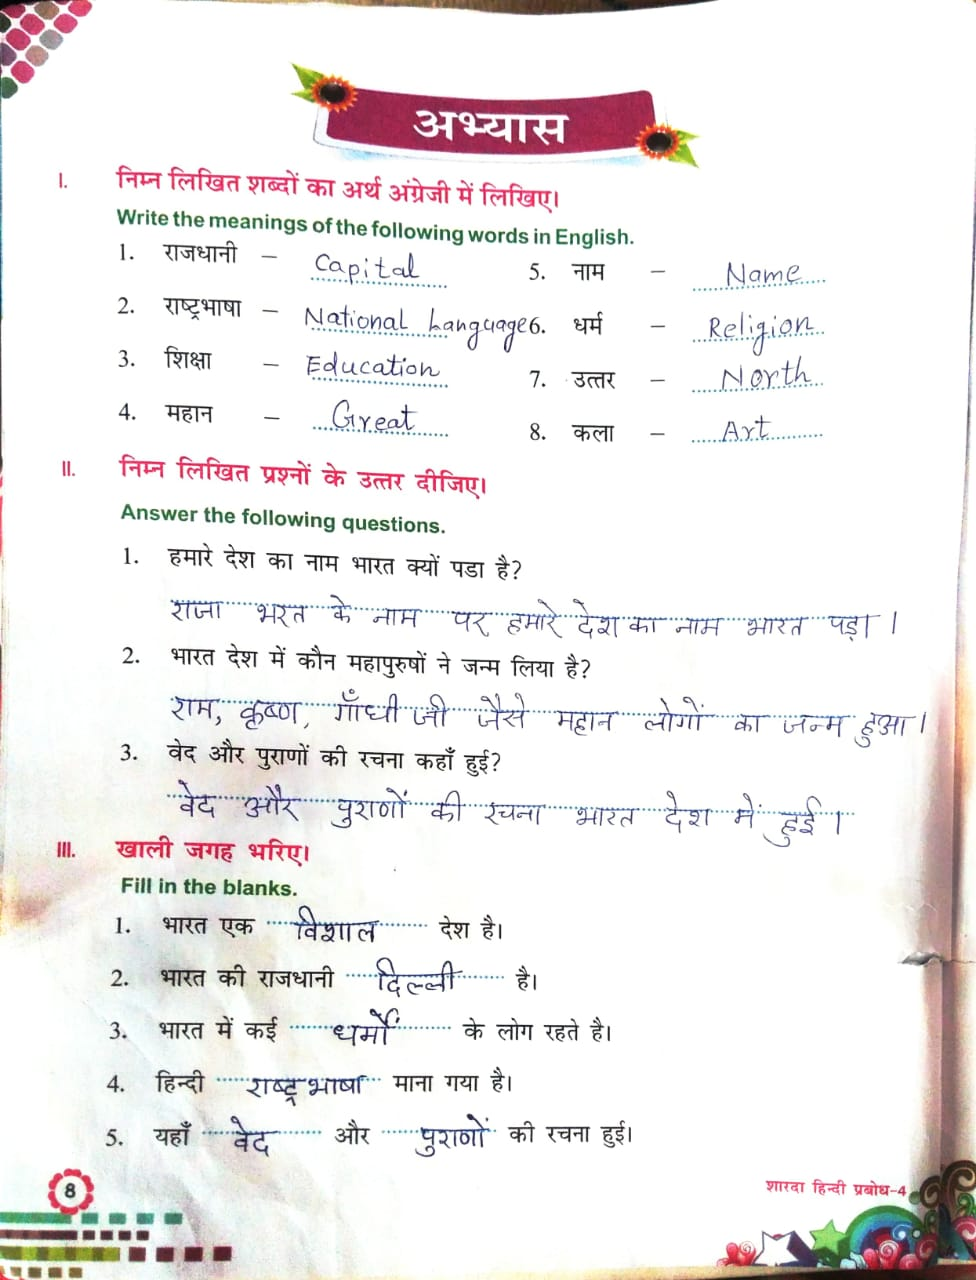 अभ्यास
I. निम्न लिखित शब्दों का अर्थ अंग्रेजी में लिखिए।
Write the meanings of the following words in English.
1. राजधानी – Capital 5. नाम – Name
2. राष्ट्रभाषा – National Language 6. धर्म – Religion
3. शिक्षा – Education 7. उत्तर – North
4. महान – Great 8. कला – Art
II. निम्न लिखित प्रश्नों के उत्तर दीजिए।
Answer the following questions.
1. हमारे देश का नाम भारत क्यों पडा है?
राजा भरत के नाम पर हमारे देश का नाम भारत पड़ा।
2. भारत देश में कौन महापुरुषों ने जन्म लिया है?
राम, कृष्ण, गाँधी जी जैसे महान लोगों का जन्म हुआ।
3. वेद और पुराणों की रचना कहाँ हुई?
वेद और पुराणों की रचना भारत देश में हुई।
III. खाली जगह भरिए।
Fill in the blanks.
1. भारत एक विशाल देश है।
2. भारत की राजधानी दिल्ली है।
3. भारत में कई धर्मों के लोग रहते है।
4. हिन्दी राष्ट्रभाषा माना गया है।
5. यहाँ वेद और पुराणों की रचना हुई।
8 शारदा हिन्दी प्रबोध-4